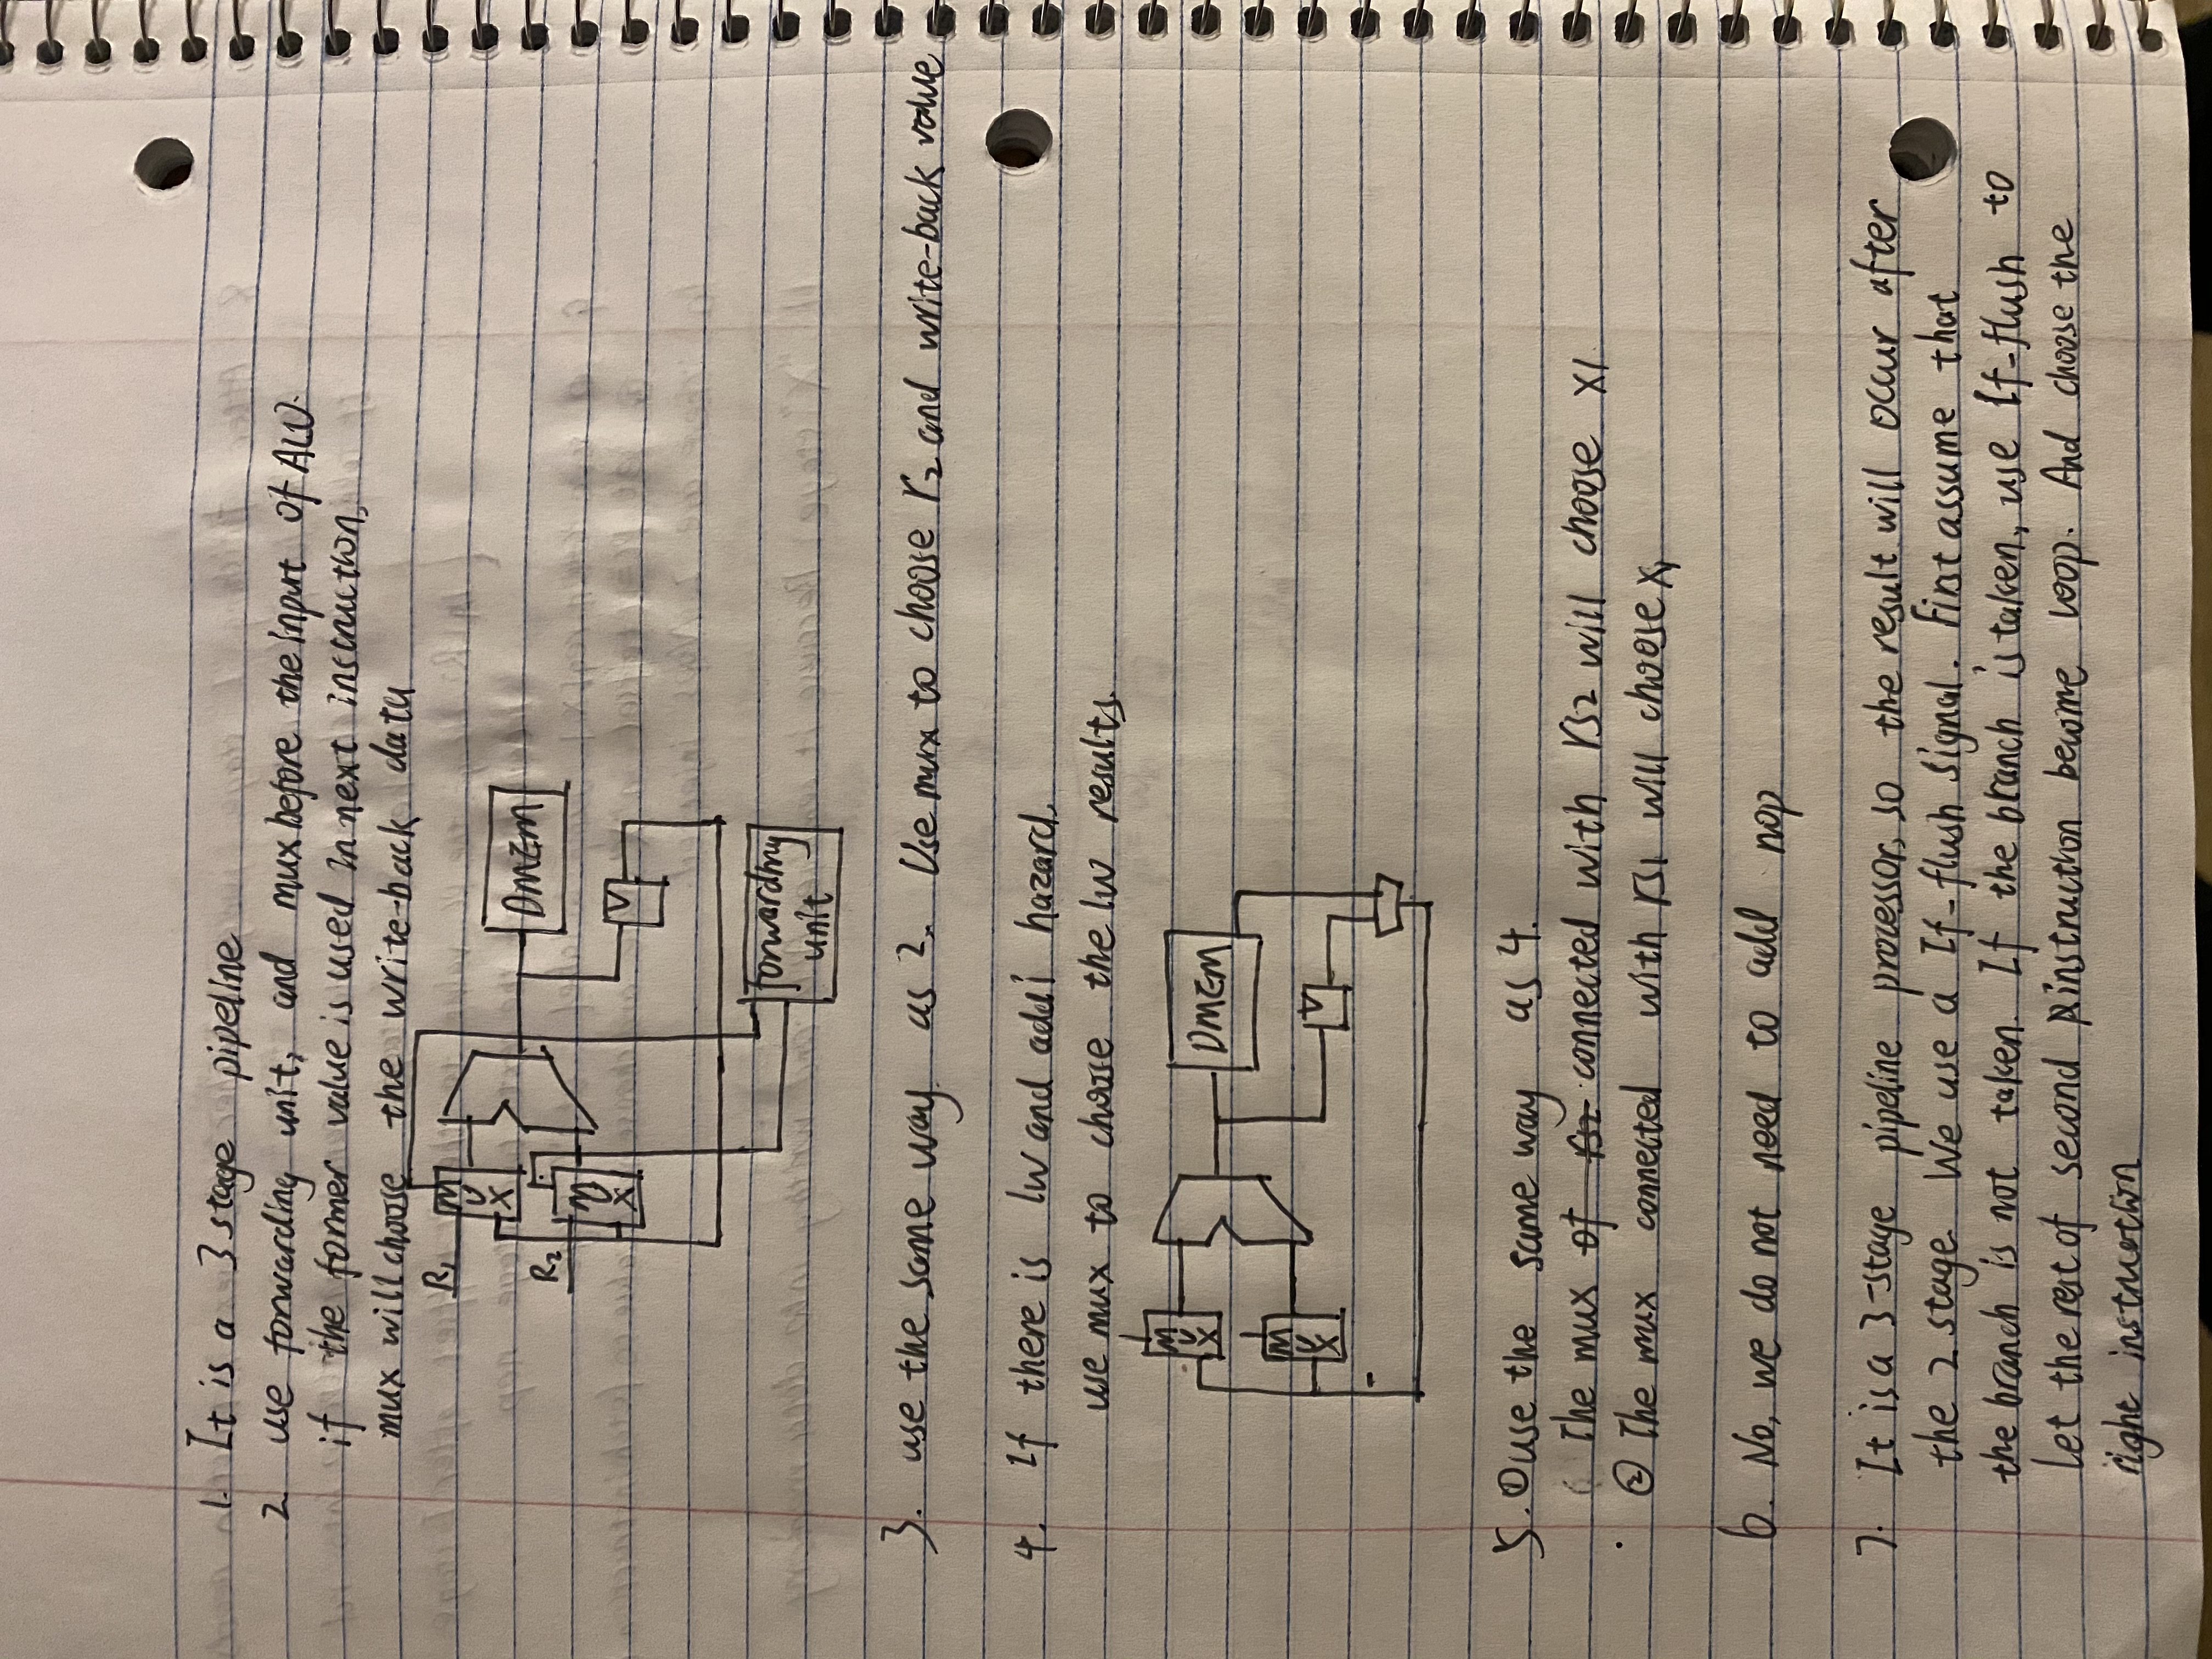 1. It is a 3 stage pipeline
2. use forwarding unit, and mux before the input of ALU.
if the former value is used in next instruction,
mux will choose the write-back data
R1
MUX
R2
MUX
DMEM
forwarding
unit
3. use the same way as 2. Use mux to choose r2 and write-back value
4. If there is lw and addi hazard.
use mux to choose the lw results.
MUX
DMEM
MUX
5. ① use the same way as 4.
The mux of rs2 connected with rs2 will choose x1.
② The mux connected with rs1 will choose x1
6. No, we do not need to add nop
7. It is a 3-stage pipeline processor, so the result will occur after
the 2 stage. We use a If-flush signal. First assume that
the branch is not taken. If the branch is taken, use If-flush to
let the rest of second instruction become loop. And choose the
right instruction